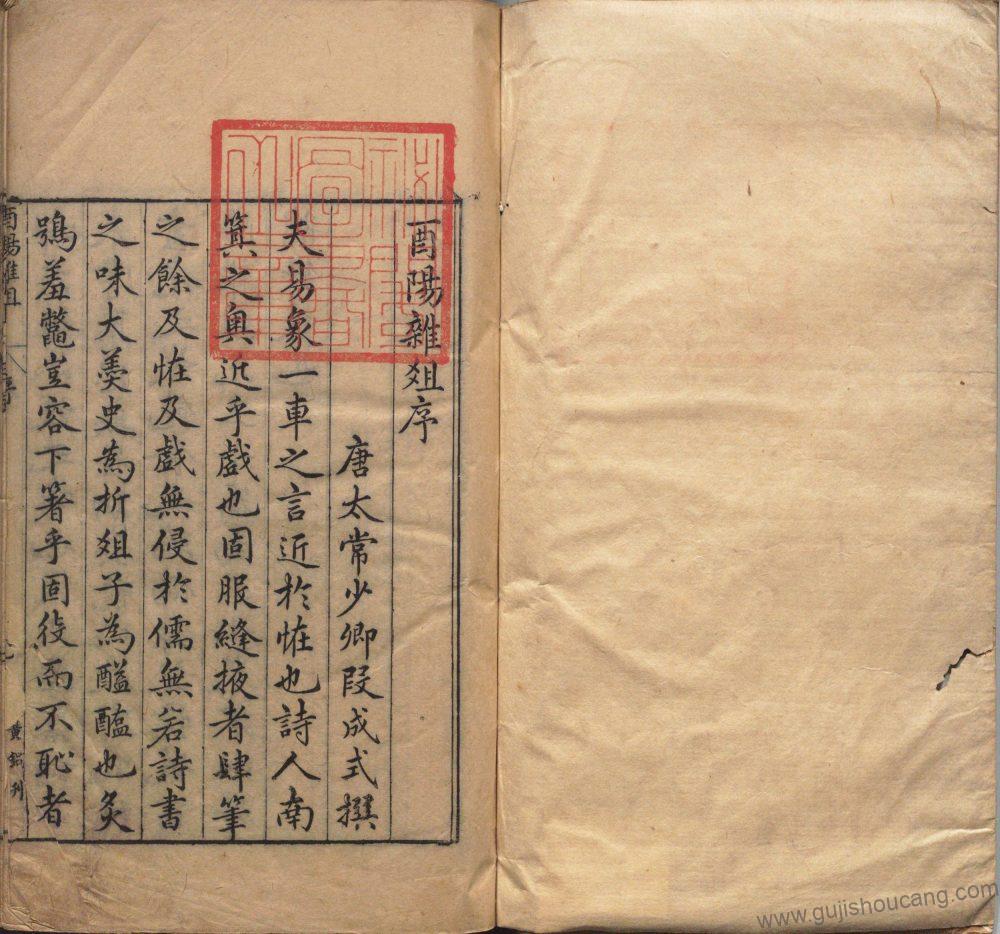 酉陽雜俎序
唐太常少卿段成式撰
夫易象一車之言近於恠也詩人南
箕之奥近乎戲也固服縫掖者肆筆
之餘及恠及戲無侵於儒無若詩書
之味大羮史為折俎子為醯醢也炙
鴞羞鼈豈容下箸乎固役而不恥者
酉陽雜俎
黄鋁刋
www.gujishoucang.com